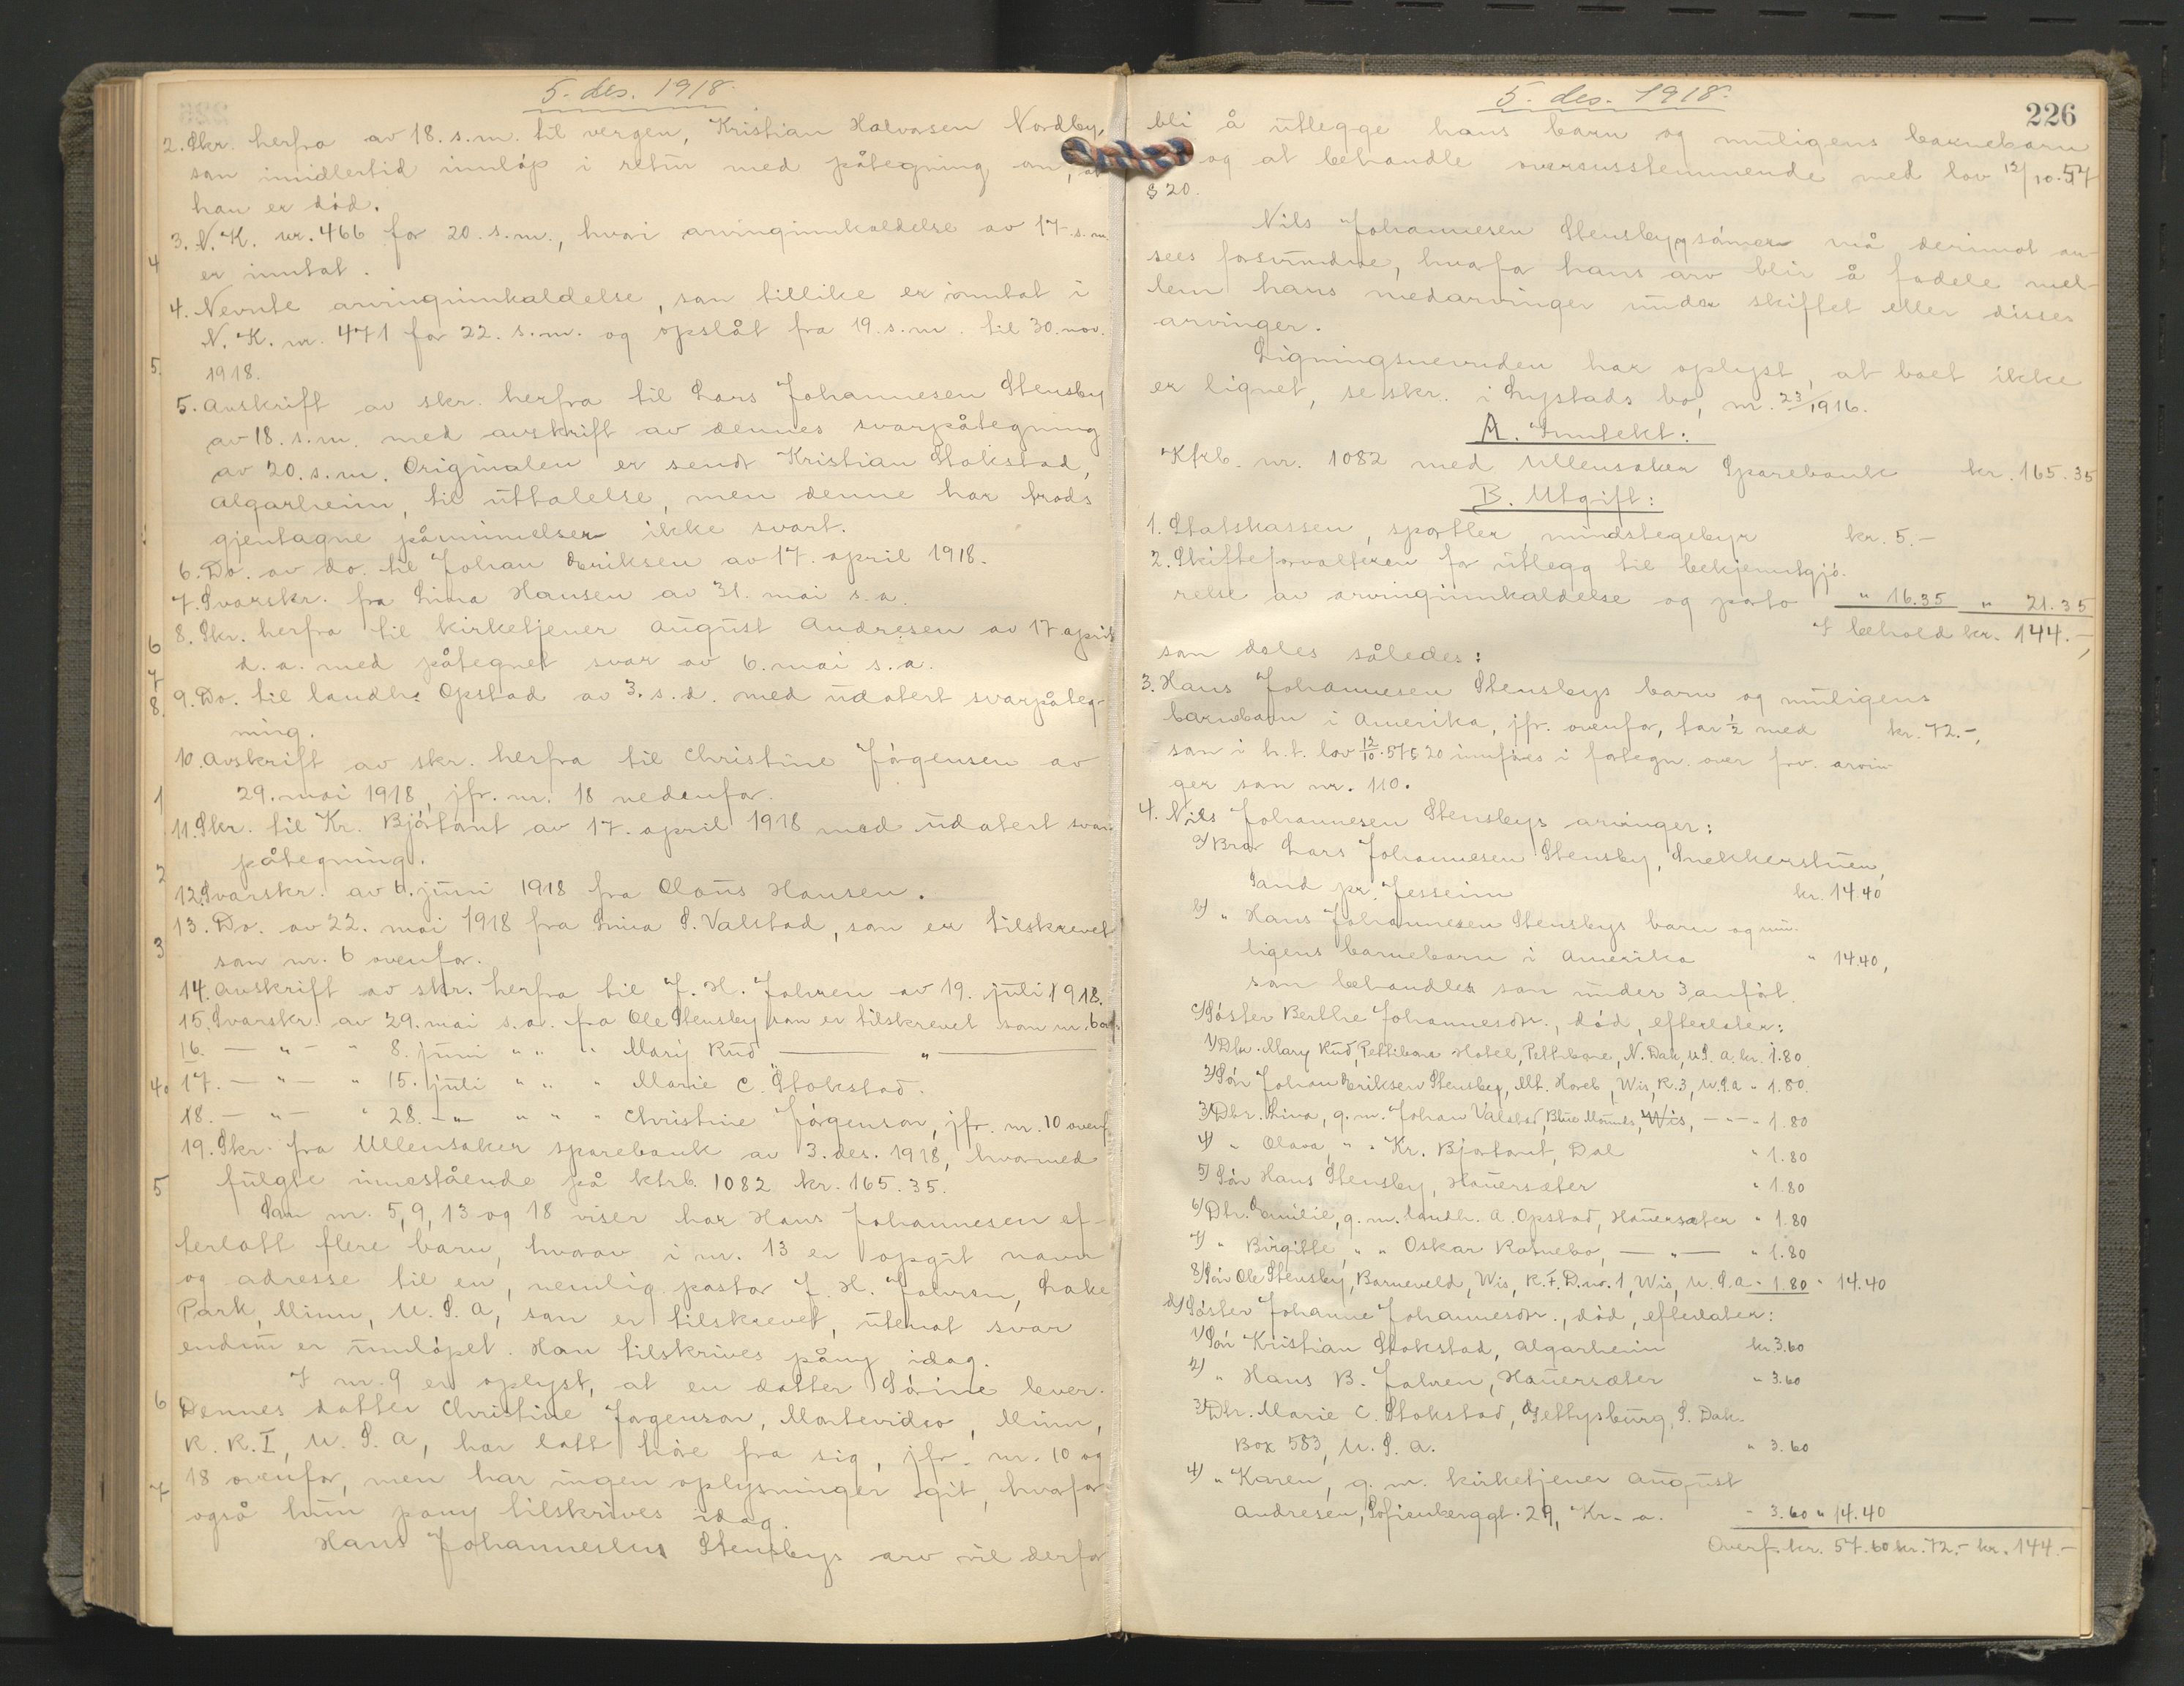 5. des. 1918.
2. Skr. herfra av 18. s.m. til vergen, Kristian Halvorsen Nordby,
som imidlertid innløp i retur med påtegning om, at
han er død.
3. N. K. nr. 466 for 20. s.m., hvori arvinginnkaldelse av 17. s.m.
er inntat.
4. Nevnte arvinginnkaldelse, som tillike er inntat i
N. K. nr. 471 for 22. s.m. og opslåt fra 19. s.m. til 30. nov.
1918.
5. Avskrift av skr. herfra til Lars Johannesen Stensby
av 18. s.m. med avskrift av dennes svarpåtegning
av 20. s.m. Originalen er sendt Kristian Stokstad,
Algarheim, til uttalelse, men denne har trods
gjentagne påminnelser ikke svart.
6. Do. av do. til Johan Eriksen av 17. april 1918.
7. Svarskr. fra Lina Hansen av 31. mai s.a.
8. Skr. herfra til kirketjener August Andresen av 17. april
d.a. med påtegnet svar av 6. mai s.a.
9. Do. til landh. Opstad av 3. s.d. med udatert svarpåteg-
ning.
10. Avskrift av skr. herfra til Christine Jørgensen av
29. mai 1918, jfr. nr. 18 nedenfor.
11. Skr. til Kr. Bjørtomt av 17. april 1918 med udatert svar-
påtegning.
12. Svarskr. av 6. juni 1918 fra Olaus Hansen.
13. Do. av 22. mai 1918 fra Lina S. Valstad, som er tilskrevet
som nr. 6 ovenfor.
14. Avskrift av skr. herfra til J. H. Johren av 19. juli 1918.
15. Svarskr. av 29. mai s.a. fra Ole Stensby som er tilskrevet som nr. 6
16. — " — " 8. juni " " " Mary Rud — " —
17. — " — " 15. juli " " " Marie C. Stokstad.
18. — " — " 28. — " " " " Christine Jørgenson, jfr. nr. 10 ovenf.
19. Skr. fra Ullensaker sparebank av 3. des. 1918, hvormed
fulgte innestående på ktrb. 1082 kr. 165.35.
Som nr. 5, 9, 13 og 18 viser har Hans Johannesen ef-
terlatt flere barn, hvorav i nr. 13 er opgit navn
og adresse til en, nemlig pastor J. H. Johren, Lake
Park, Minn, U.S.A, som er tilskrevet, utenat svar
endnu er innløpet. Han tilskrives påny idag.
I nr. 9 er oplyst, at en datter Sørine lever.
Dennes datter Christine Jørgenson, Montevideo, Minn,
R. R. I, U.S.A, har latt høre fra sig, jfr. nr. 10 og
18 ovenfor, men har ingen oplysninger git, hvorfor
også hun påny tilskrives idag.
Hans Johannesens Stensbys arv vil derfor
5. des. 1918.
226
bli å utlegge hans barn og muligens barnebarn
og at behandle overensstemmende med lov 12/10.57
§ 20.
Nils Johannesen Stensby, sømer må derimot an-
sees forsvundne, hvorfor hans arv blir å fordele mel-
lem hans medarvinger under skiftet eller disses
arvinger.
Ligningsnevnden har oplyst, at boet ikke
er lignet, se skr. i Lystads bo, nr. 23/1916.
A. Inntekt:
Ktrb. nr. 1082 med Ullensaker Sparebank kr. 165.35
B. Utgift:
1. Statskassen, sportler, mindstegebyr kr. 5.—
2. Skifteforvalteren for utlegg til bekjentgjø-
relse av arvinginnkaldelse og porto " 16.35 " 21.35
I behold kr. 144.—,
som deles således:
3. Hans Johannesen Stensbys barn og muligens
barnebarn i Amerika, jfr. ovenfor, tar 1/2 med kr. 72.—,
som i h.t. lov 12/10.57 § 20 innføres i fortegn. over frv. arvin-
ger som nr. 110.
4. Nils Johannesen Stensbys arvinger:
a) Bror Lars Johannesen Stensby, Snekkerstuen,
Sand pr. Jesseim kr. 14.40
b) " Hans Johannesen Stensbys barn og mu-
ligens barnebarn i Amerika " 14.40,
som behandles som under 3 anført.
c) Søster Berthe Johannesdtr., død, efterlater:
1) Dtr. Mary Rud, Pettibone Hotel, Pettibone, N. Dak, U.S.A. kr. 1.80
2) Søn Johan Eriksen Stensby, Mt. Horeb, Wis, R. 3, U.S.A " 1.80.
3) Dtr. Lina, g.m. Johan Valstad, Blue Mounds, Wis, — " — " 1.80
4) " Olava, " " Kr. Bjørtomt, Dal " 1.80
5) Søn Hans Stensby, Hauersæter " 1.80
6) Dtr. Emilie, g.m. landh. A. Opstad, Hauersæter " 1.80
7) " Birgitte, " " Oskar Ratnebo, — " — " 1.80
8) Søn Ole Stensby, Barneveld, Wis, R.F.D. nr. 1, Wis, U.S.A " 1.80 " 14.40
d) Søster Johanne Johannesdtr., død, efterlater:
1) Søn Kristian Stokstad, Algarheim kr. 3.60
2) " Hans B. Johren, Hauersæter " 3.60
3) Dtr. Marie C. Stokstad, Gettysburg, S. Dak.
Box 583, U.S.A. " 3.60
4) " Karen, g.m. kirketjener August
Andresen, Sofienberggt. 29, Kr-a. " 3.60 " 14.40
Overf. kr. 57.60 kr. 72.— kr. 144.—